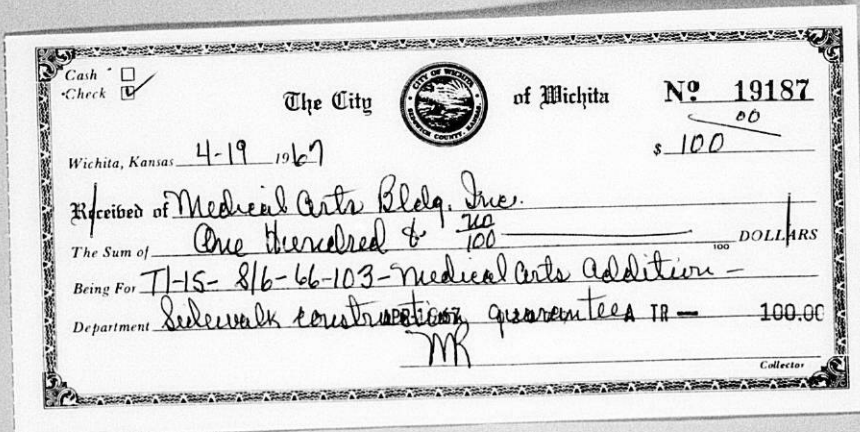 Cash ☐
Check ☑
The City of Wichita
CITY OF WICHITA
SEDGWICK COUNTY, KANSAS
Nº 19187
Wichita, Kansas 4-19 1967
$ 100 00
Received of Medical Arts Bldg. Inc.
The Sum of One Hundred & no/100 100 DOLLARS
Being For T1-15- 816-66-103-Medical Arts Addition -
Department Sidewalk construction guarantee A TR — 100.00
MR
Collector